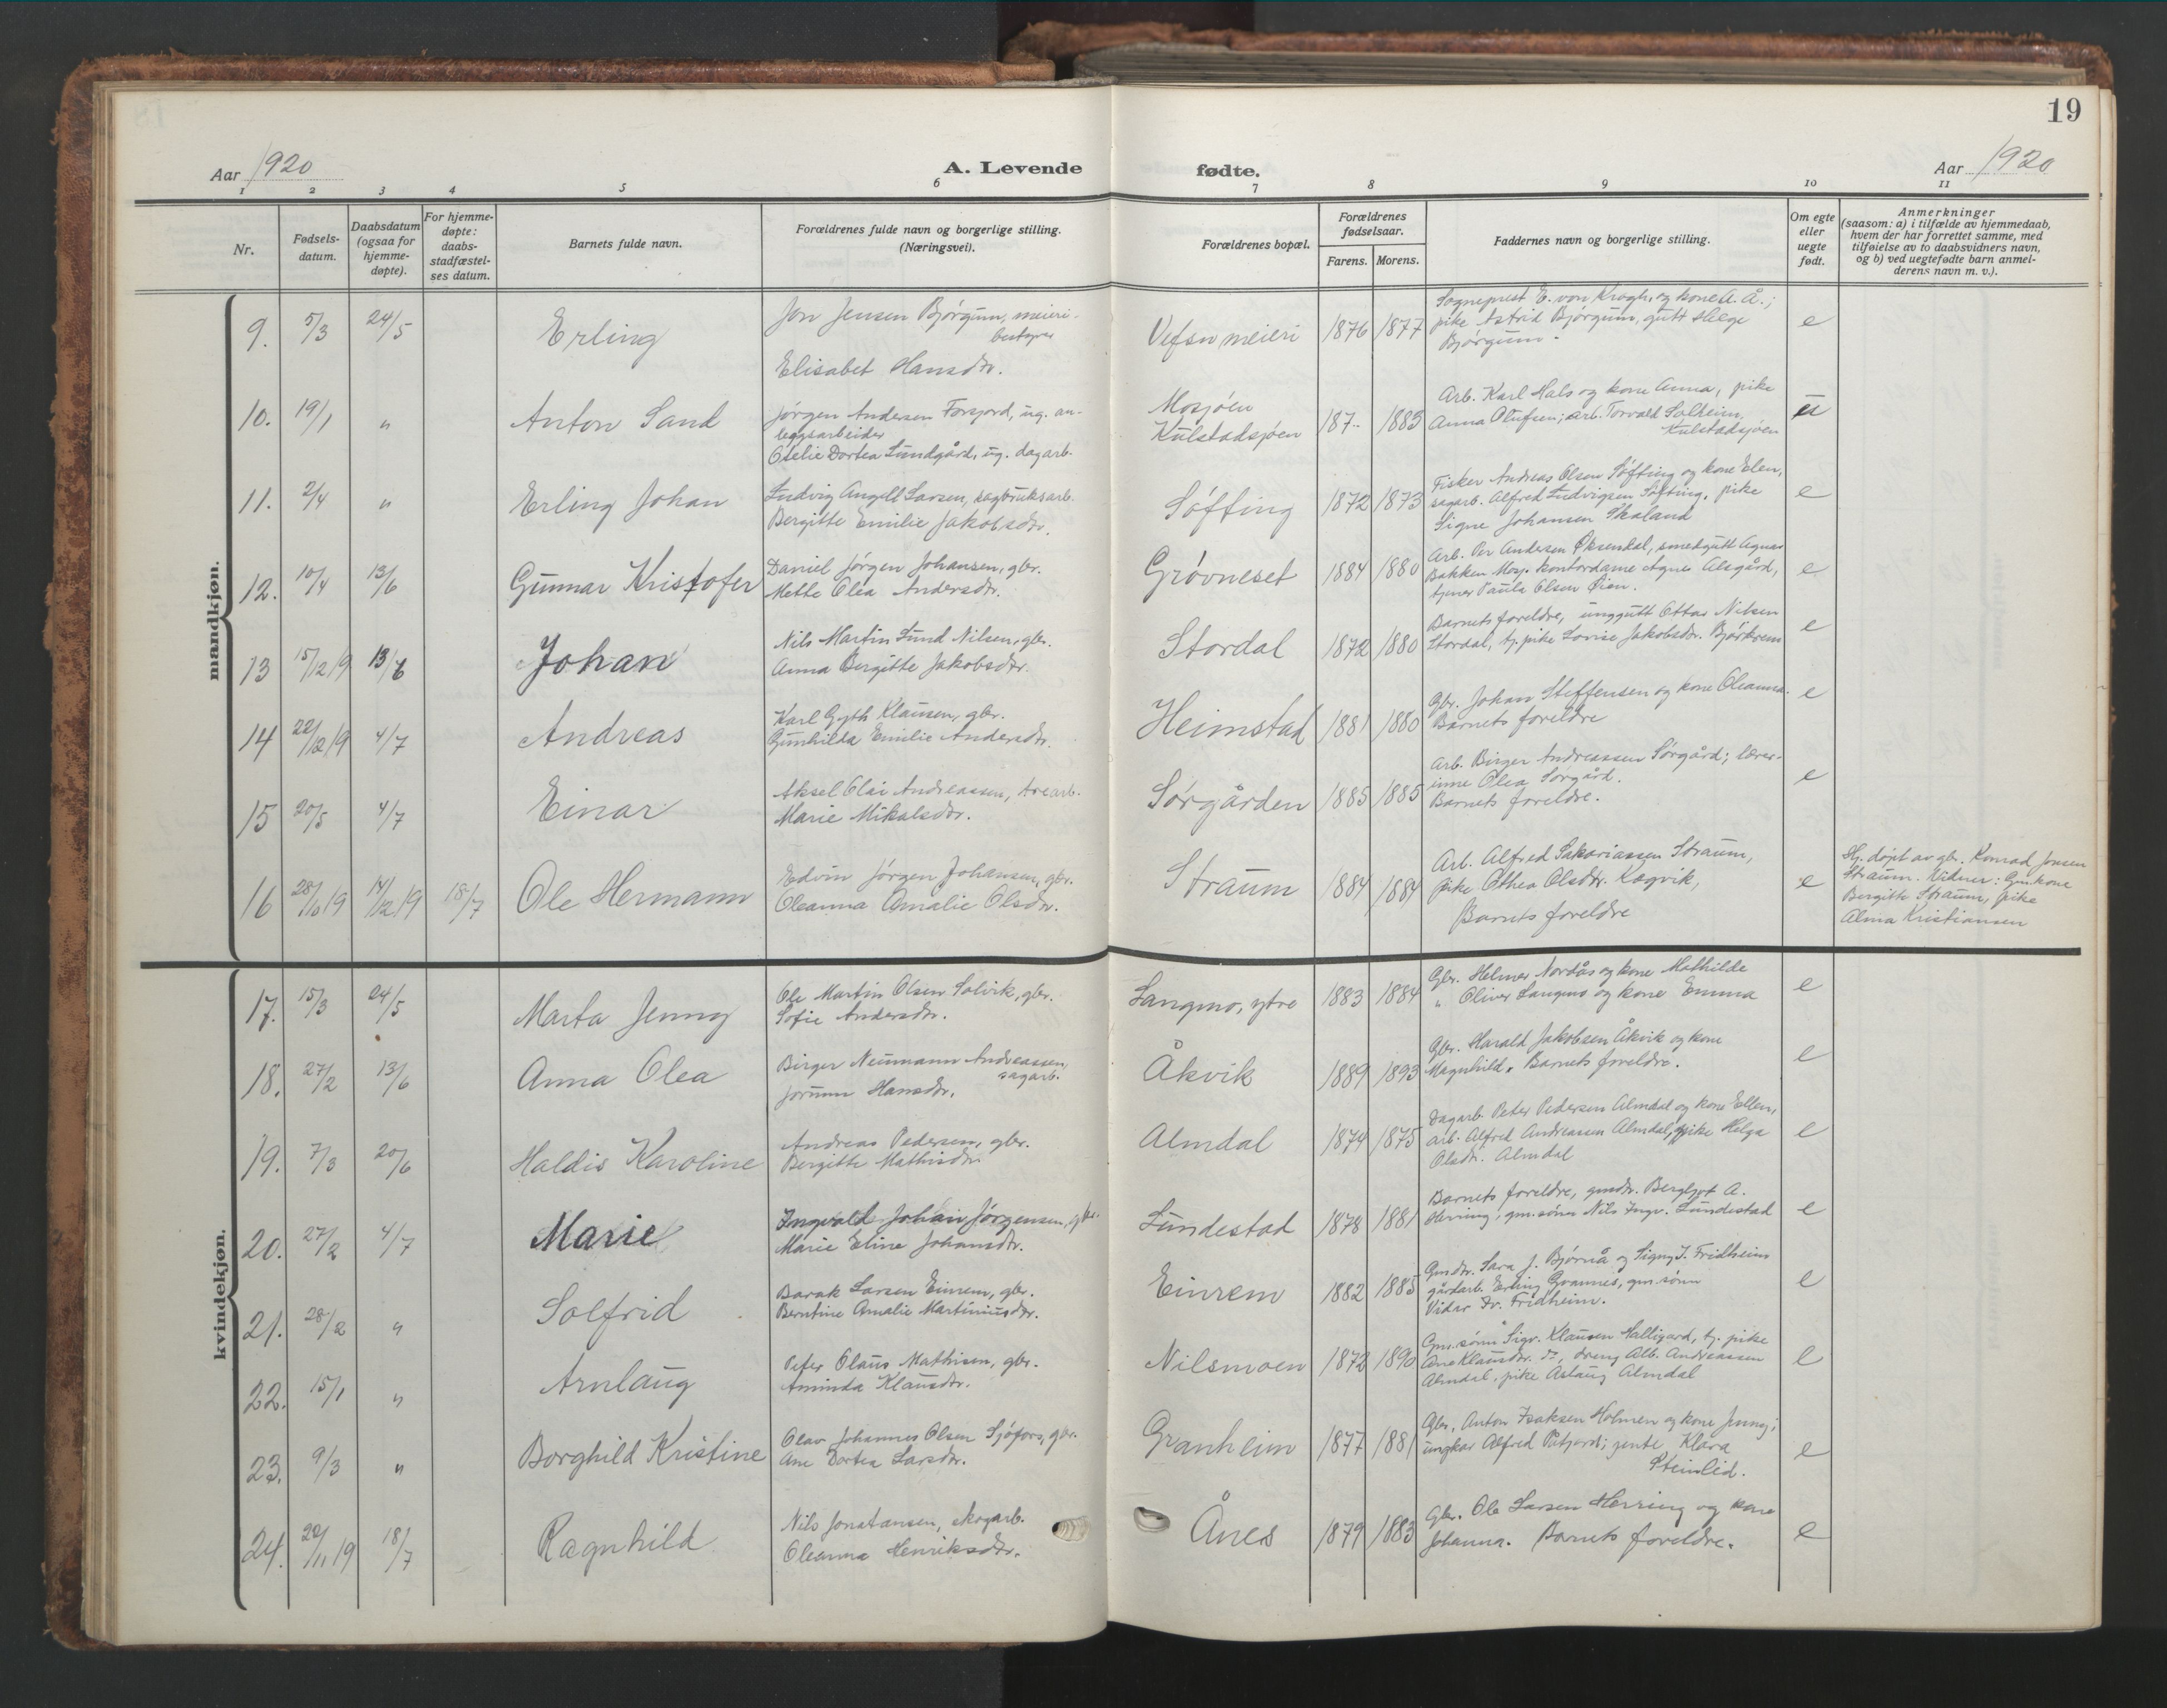 19
Aar 1920
A. Levende
fødte.
Aar 1920
1 2 3 4 5 6 7 8 9 10 11
Nr.
Fødsels-
datum.
Daabsdatum
(ogsaa for
hjemme-
døpte).
For hjemme-
døpte:
daabs-
stadfæstel-
ses datum.
Barnets fulde navn.
Forældrenes fulde navn og borgerlige stilling.
(Næringsvei).
Forældrenes bopæl.
Forældrenes
fødselsaar.
Farens. Morens.
Faddernes navn og borgerlige stilling.
Om egte
eller
uegte
født.
Anmerkninger
(saasom: a) i tilfælde av hjemmedaab,
hvem der har forrettet samme, med
tilføielse av to daabsvidners navn,
og b) ved uegtefødte barn anmel-
derens navn m. v.).
mandkjøn.
9. 5/3 24/5 Erling
Jon Jensen Bjørgum, meieri-
bestyrer
Elisabet Hansdtr.
Vefsn meieri 1876 1877
Sogneprest E. von Krogh, og kone A. Å.;
pike Astrid Bjørgum, gutt Helge
Bjørgum.
e
10. 19/1 " Anton Sand
Jørgen Andersen Forsjord, ug. an-
leggsarbeider
Otelie Dortea Lundgård, ug. dagarb.
Mosjøen
Kulstadsjøen 187.. 1883
Arb. Karl Hals og kone Anna, pike
Anna Olufsen; arb. Torvald Solheim,
Kulstadsjøen
u
11. 2/4 " Erling Johan
Ludvig Angell Larsen, sagbruksarb.
Bergitte Emilie Jakobsdtr.
Søfting 1872 1873
Fisker Andreas Olsen Søfting og kone Elen,
sagarb. Alfred Ludvigsen Søfting, pike
Signe Johansen Skaland
e
12. 10/4 13/6 Gunnar Kristofer
Daniel Jørgen Johansen, gbr.
Mette Olea Andersdtr.
Grøvneset 1884 1880
Arb. Per Andersen Øksendal, smedgutt Agnar
Bakken Mosj. kontordame Agnes Alsgård,
tjener Paula Olsen Øien.
e
13 15/12 19 13/6 Johan
Nils Martin Lund Nilsen, gbr.
Anna Bergitte Jakobsdtr.
Stordal 1872 1880
Barnets foreldre, unggutt Ottar Nilsen
Stordal, tj. pike Lovise Jakobsdtr. Bjørkmo
e
14 22/12 19 4/7 Andreas
Karl Gyth Klausen, gbr.
Gunhilda Emilie Andersdtr.
Heimstad 1881 1880
Gbr. Johan Steffensen og kone Oleanna.
Barnets foreldre
e
15 20/5 4/7 Einar
Aksel Olai Andreassen, trearb.
Marie Mikalsdtr.
Sørgården 1885 1885
Arb. Birger Andreassen Sørgård; lærer-
inne Olea Sørgård.
Barnets foreldre.
e
16 28/10 19 14/12 19 18/7 Ole Hermann
Edvin Jørgen Johansen, gbr.
Oleanna Amalie Olsdtr.
Straum 1884 1884
Arb. Alfred Sakariassen Straum,
pike Othea Olsdtr. Kagvik,
Barnets foreldre
e
Hj. døpt av gbr. Konrad Jensen
Straum. Vidner: Gm.kone
Bergitte Straum, pike
Alma Kristiansen
kvindekjøn.
17. 15/3 24/5 Marta Jenny
Ole Martin Olsen Solvik, gbr.
Sofie Andersdtr.
Langmo, ytre 1883 1884
Gbr. Helmer Nordås og kone Mathilde
" Oliver Langmo og kone Emma
e
18. 27/2 13/6 Anna Olea
Birger Neumann Andreassen,
sagarb.
Jorunn Hansdtr.
Åkvik 1889 1893
Gbr. Harald Jakobsen Åkvik og kone
Magnhild. Barnets foreldre.
e
19. 7/3 20/6 Haldis Karoline
Andreas Pedersen, gbr.
Bergitte Mathisdtr.
Almdal 1874 1875
Dagarb. Peter Pedersen Almdal og kone Ellen,
arb. Alfred Andreassen Almdal, pike Helga
Olsdtr. Almdal
e
20. 27/2 4/7 Marie
Ingvald Johan Jørgensen, gbr.
Marie Eline Johansdtr.
Lundestad 1878 1881
Barnets foreldre, gmdtr. Bergljot A.
Herring, gm.sønn Nils Ingv. Lundestad
e
21. 28/2 " Solfrid
Barak Larsen Einrem, gbr.
Berntine Amalie Martinusdtr.
Einrem 1882 1885
Gmdtr. Sara J. Bjørnå og Signy J. Fridheim
gårdarb. Erling Grannes, gm.sønn
Vidar Fr. Fridheim.
e
22. 15/1 " Arnlaug
Peter Olaus Mathisen, gbr.
Aminda Klausdtr.
Nilsmoen 1872 1890
Gm.sønn Sigv. Klausen Halligard, tj. pike
Ane Klausdtr. ds., dreng Alb. Andreassen
Almdal, pike Aslaug Almdal
e
23. 9/3 " Borghild Kristine
Olav Johannes Olsen Sjøfors, gbr.
Ane Dortea Larsdtr.
Granheim 1877 1881
Gbr. Anton Isaksen Holmen og kone Jenny;
ungkar Alfred; jente Klara
Steinlid.
e
24. 29/11 19 18/7 Ragnhild
Nils Jonatansen, skogarb.
Oleanna Henriksdtr.
Ånes 1879 1883
Gbr. Ole Larsen Herring og kone
Johanna. Barnets foreldre.
e